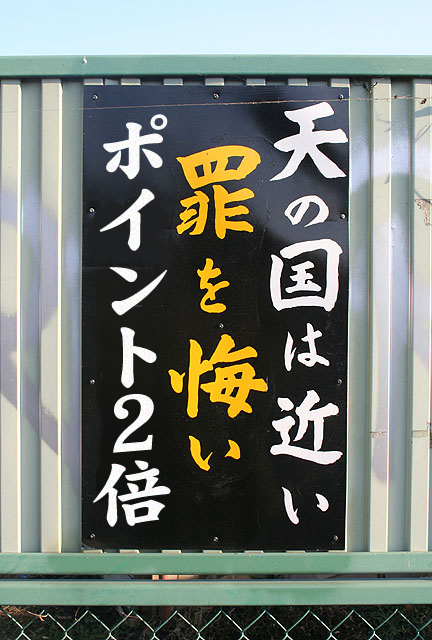 天の国は近い
罪を悔い
ポイント2倍